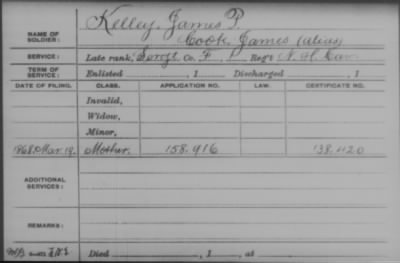 Kelley, James P.
NAME OF SOLDIER:
Cook, James (alias)
SERVICE:
Late rank, Sergt Co. F, 1 Reg't N. H. Cav
TERM OF SERVICE:
Enlisted , 1 Discharged , 1
DATE OF FILING. CLASS. APPLICATION NO. LAW. CERTIFICATE NO.
Invalid,
Widow,
Minor,
1868, Mar. 19. Mother, 158.916 138.420
ADDITIONAL SERVICES:
REMARKS:
Died , 1 , at